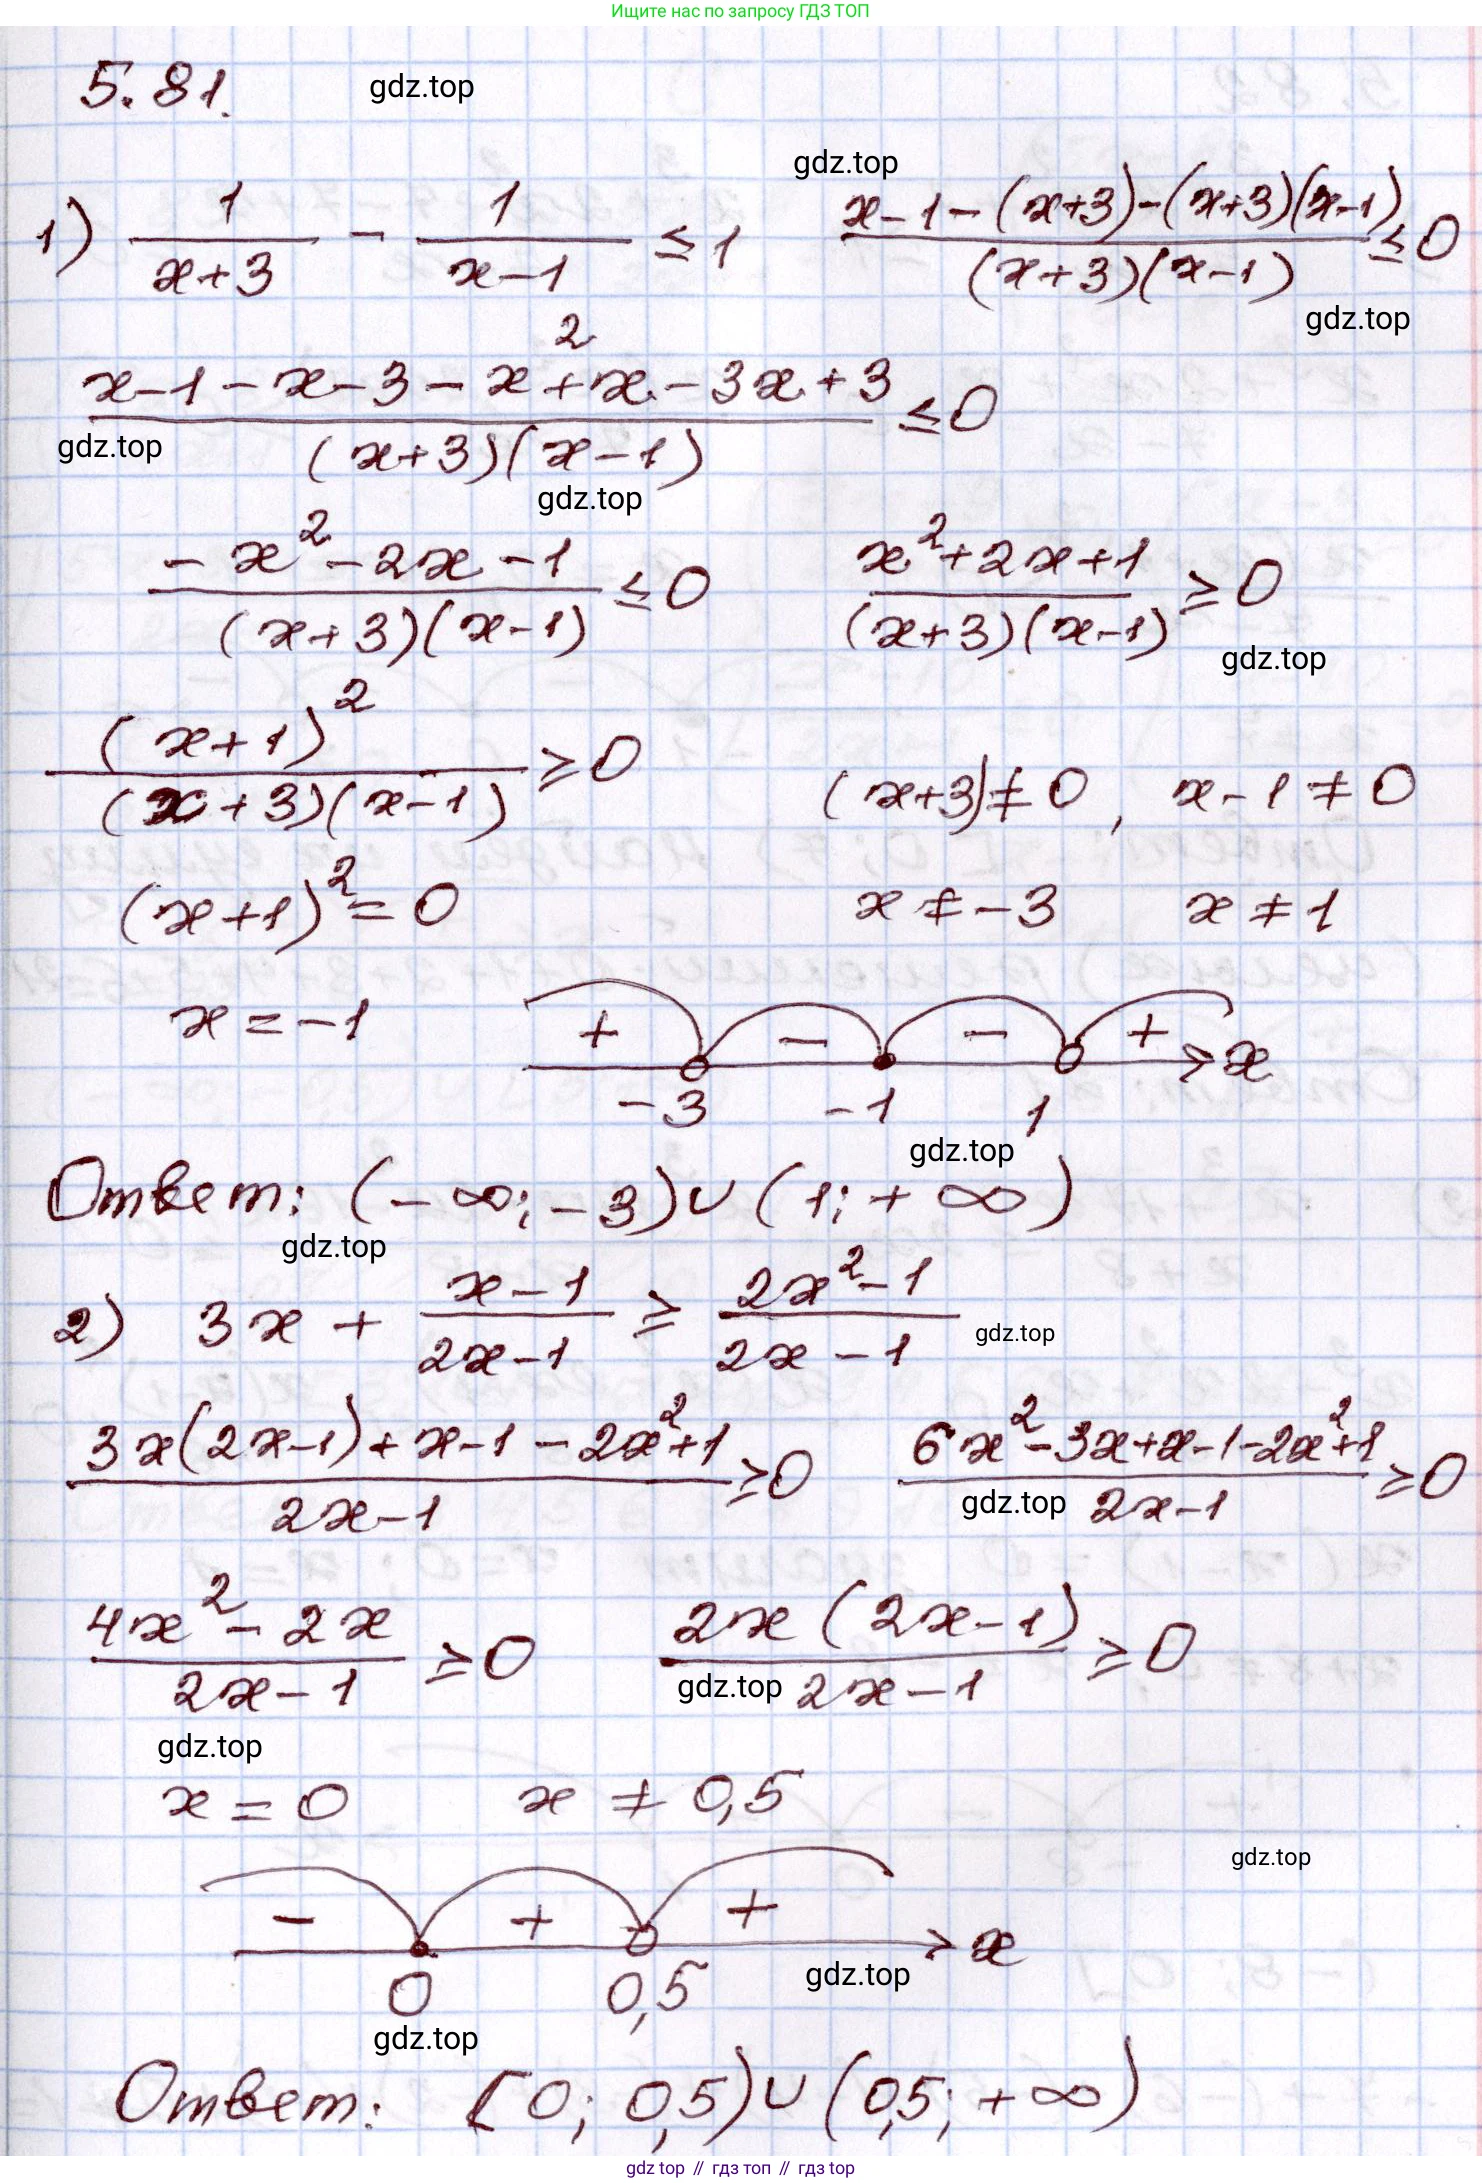 Ищите нас по запросу ГДЗ ТОП
5.81. gdz.top
gdz.top
1) 1/(x+3) - 1/(x-1) ≤ 1 (x-1-(x+3)-(x+3)(x-1))/((x+3)(x-1)) ≤ 0
gdz.top
(x-1-x-3-x²+x-3x+3)/((x+3)(x-1)) ≤ 0
gdz.top
gdz.top
(-x²-2x-1)/((x+3)(x-1)) ≤ 0 (x²+2x+1)/((x+3)(x-1)) ≥ 0
gdz.top
(x+1)²/((x+3)(x-1)) ≥ 0 (x+3)≠0, x-1≠0
(x+1)²=0 x≠-3 x≠1
x=-1 + - - + x
-3 -1 1
gdz.top
Ответ: (-∞;-3)∪(1;+∞)
gdz.top
2) 3x + (x-1)/(2x-1) ≥ (2x²-1)/(2x-1)
gdz.top
(3x(2x-1)+x-1-2x²+1)/(2x-1) ≥ 0 (6x²-3x+x-1-2x²+1)/(2x-1) ≥ 0
gdz.top
(4x²-2x)/(2x-1) ≥ 0 2x(2x-1)/(2x-1) ≥ 0
gdz.top
gdz.top
x=0 x≠0,5
gdz.top
- + + x
0 0,5 gdz.top
gdz.top
Ответ: [0; 0,5)∪(0,5;+∞)
gdz top // гдз топ // gdz.top